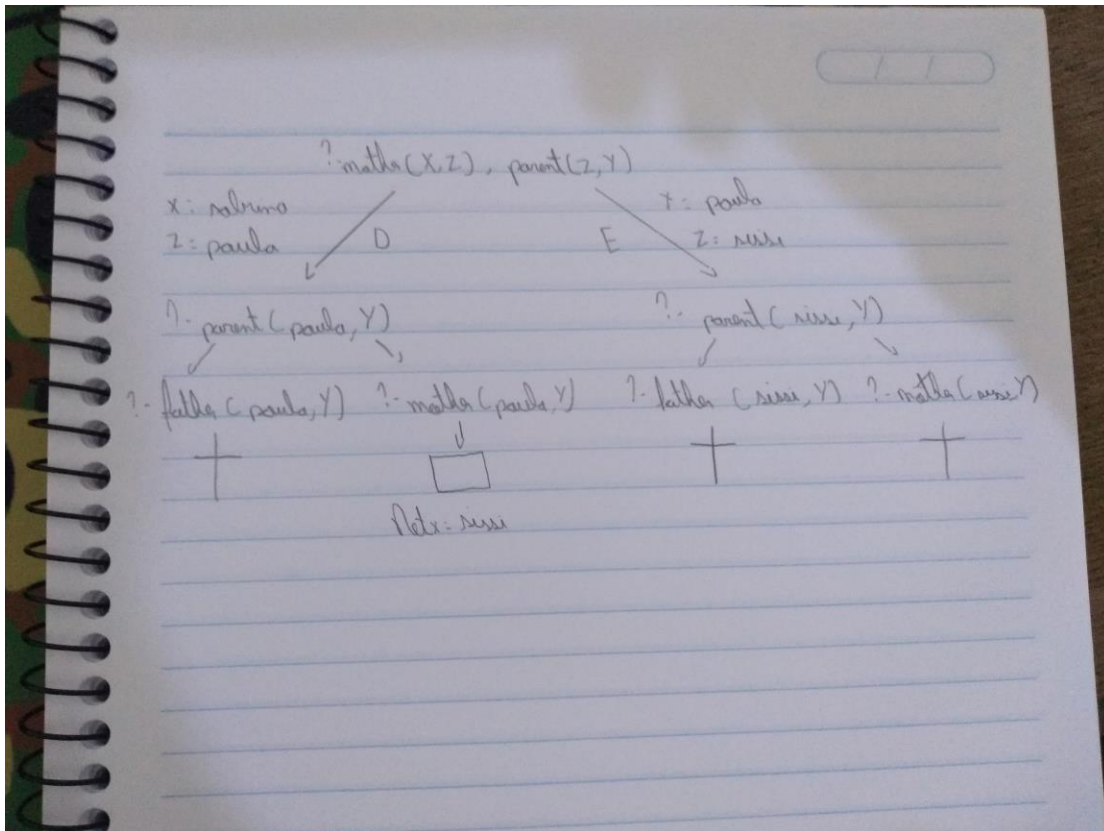 ?- mother(X,Z), parent(Z,Y)
X: sabrina X: paula
Z: paula D E Z: sissi
?- parent(paula,Y) ?- parent(sissi,Y)
?- father(paula,Y) ?- mother(paula,Y) ?- father(sissi,Y) ?- mother(sissi,Y)
sissi